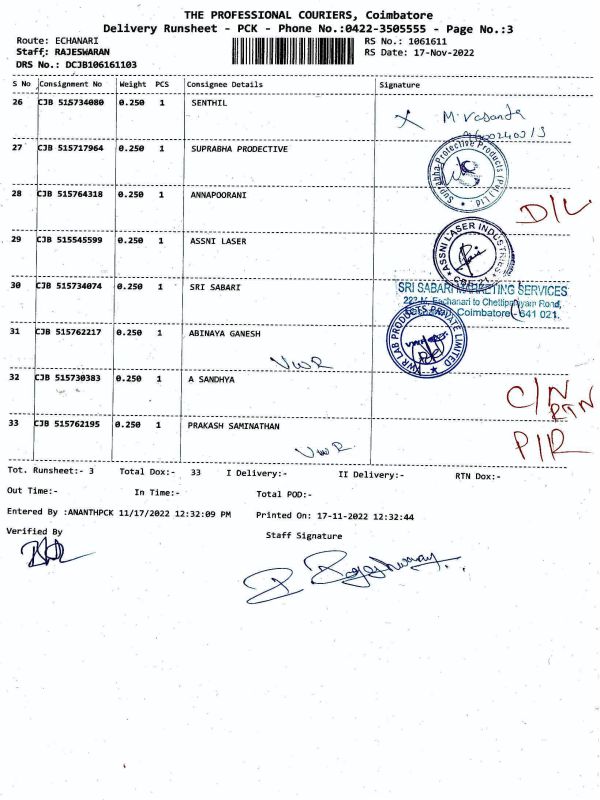 THE PROFESSIONAL COURIERS, Coimbatore
Delivery Runsheet - PCK - Phone No.:0422-3505555 - Page No.:3
Route: ECHANARI
RS No.: 1061611
Staff: RAJESWARAN
RS Date: 17-Nov-2022
DRS No.: DCJB106161103
S No Consignment No Weight PCS Consignee Details Signature
26 CJB 515734080 0.250 1 SENTHIL
M. Vasanta
27 CJB 515717964 0.250 1 SUPRABHA PRODECTIVE
Suprabha Protective Products (P) Ltd
28 CJB 515764318 0.250 1 ANNAPOORANI
D/L
29 CJB 515545599 0.250 1 ASSNI LASER
ASSNI LASER INDUSTRIES
30 CJB 515734074 0.250 1 SRI SABARI
SRI SABARI MARKETING SERVICES
Eachanari to Chettipalayam Road,
Coimbatore 641 021.
31 CJB 515762217 0.250 1 ABINAYA GANESH
VWR
VWR LAB PRODUCTS PRIVATE LIMITED
32 CJB 515730383 0.250 1 A SANDHYA
C/N
RTN
33 CJB 515762195 0.250 1 PRAKASH SAMINATHAN
VWR
P/R
Tot. Runsheet:- 3 Total Dox:- 33 I Delivery:- II Delivery:- RTN Dox:-
Out Time:- In Time:- Total POD:-
Entered By :ANANTHPCK 11/17/2022 12:32:09 PM Printed On: 17-11-2022 12:32:44
Verified By Staff Signature
R. Rajeshwaran